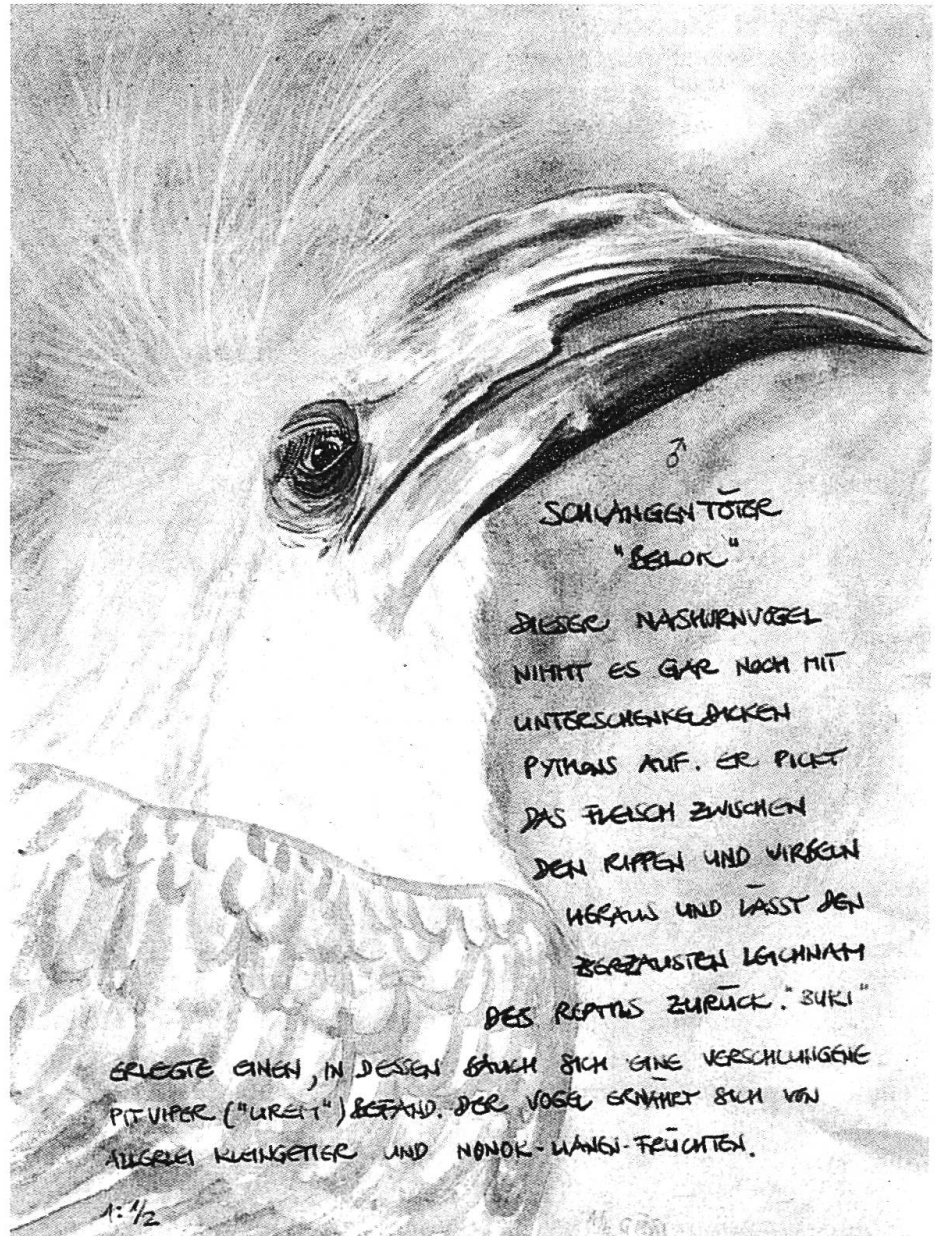 ♂
SCHLANGENTÖTER
"BELOK"
DIESER NASHORNVOGEL
NIMMT ES GAR NOCH MIT
UNTERSCHENKELDICKEN
PYTHONS AUF. ER PICKT
DAS FLEISCH ZWISCHEN
DEN RIPPEN UND WIRBELN
HERAUS UND LÄSST DEN
ZERZAUSTEN LEICHNAM
DES REPTILS ZURÜCK. "BUKI"
ERLEGTE EINEN, IN DESSEN BAUCH SICH EINE VERSCHLUNGENE
PITVIPER ("UREIT") BEFAND. DER VOGEL ERNÄHRT SICH VON
ALLERLEI KLEINGETIER UND NONOK-LIANEN-FRÜCHTEN.
1:1/2